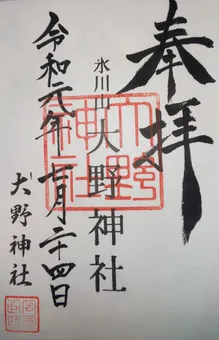 奉拝
氷川山
大野神社
大野
神社
令和元年七月二十四日
大野神社